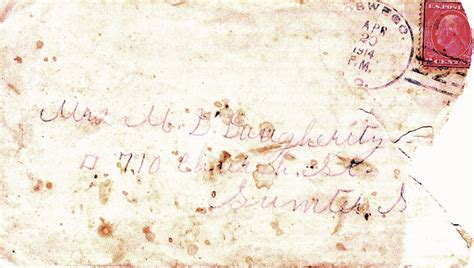 OSWEGO.
APR
20
1914
P.M.
S.C.
U.S. POST
2 CENTS 2
Mrs M. D. Daugherity
710 Church St.
Sumter S